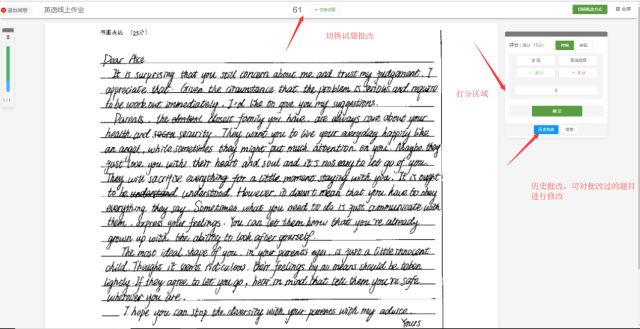 英语线上作业
61
切换试题
切换试题批改
书面表达 (25分)
Dear Alice
It is surprising that you still concern about me and trust my judgement. I
appreciate that. Given the cirumstance that the problem is serious and require
to be work out immediately, I'd like to give you my suggestions.
Parents, the closest family you have, are always care about your
health and security. They want you to live your everyday happily like
an angel, while sometimes they might put much attention on you. Maybe they
just love you with their heart and soul and it's not easy to let go of you.
They will sacrifice everything for a little moment staying with you. It is ought
to be understand. However, it doesn't mean that you have to obey
everything they say. Sometimes what you need to do is just communicate with
them, express your feelings. You can let them know that you're already
grown up with the ability to look after yourself.
The most ideal shape of you, in your parents eyes, is just a little innocent
child. Thought it seems ridiculous, their feelings by no means should be taken
lightly. If they agree to let you go, bear in mind that tell them you're safe
wherever you are.
I hope you can stop the diversity with your parents with my advice.
Yours
打分区域
历史批改，可对批改过的题目
进行修改
历史批改